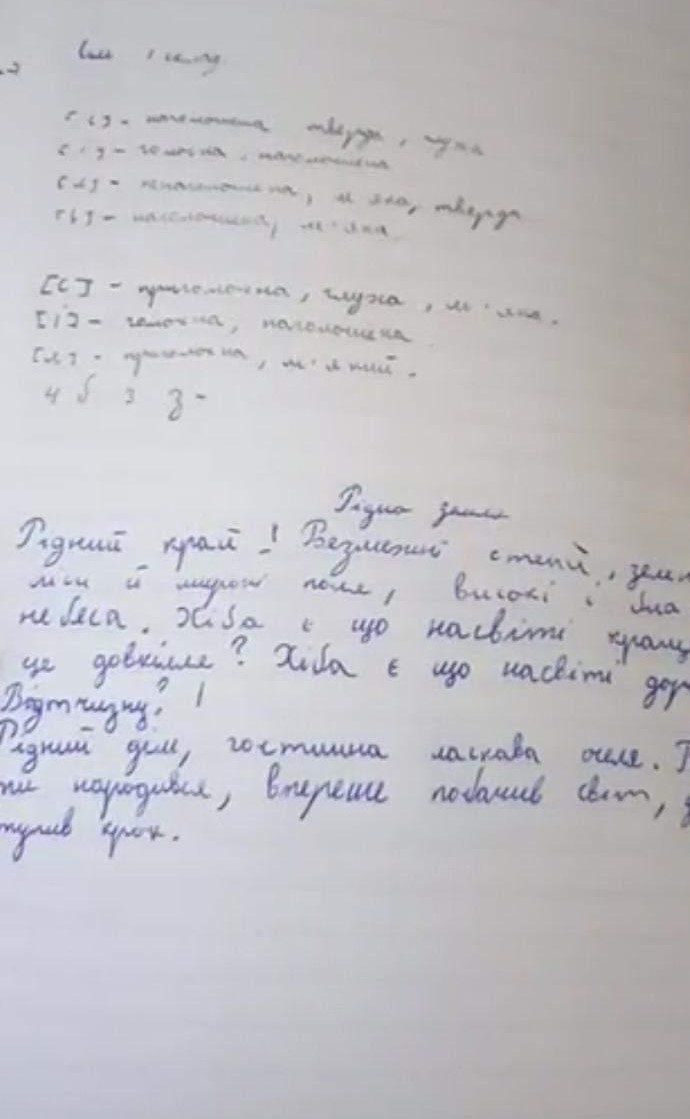 [с] - наголошена тверда, глуха
[і] - голосна, наголошена
[л] - ненаголошена, м'яка, тверда
[ь] - наголошена, м'яка
[С] - приголосна, глуха, м'яка.
[і] - голосна, наголошена
[л] - приголосна, м'який.
4 б 3 з -
Рідна земля
Рідний край! Безмежні степи, зелен
й широкі поля, високі і
небеса. Хіба є що насвіті кращ
це довкілле? Хіба є що насвіті дор
Відтчизну?!
Рідний дім, гостинна ласкава оселя.
ти народився, вперше побачив світ,
тупив крок.